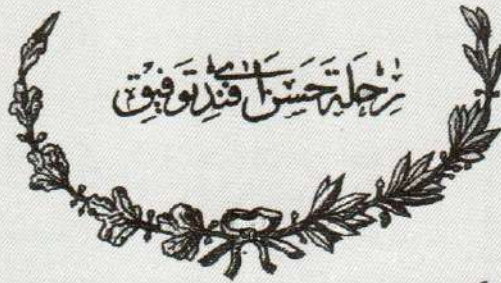 رِحْلَة حَسَن أَفَنْدِي تَوفيق